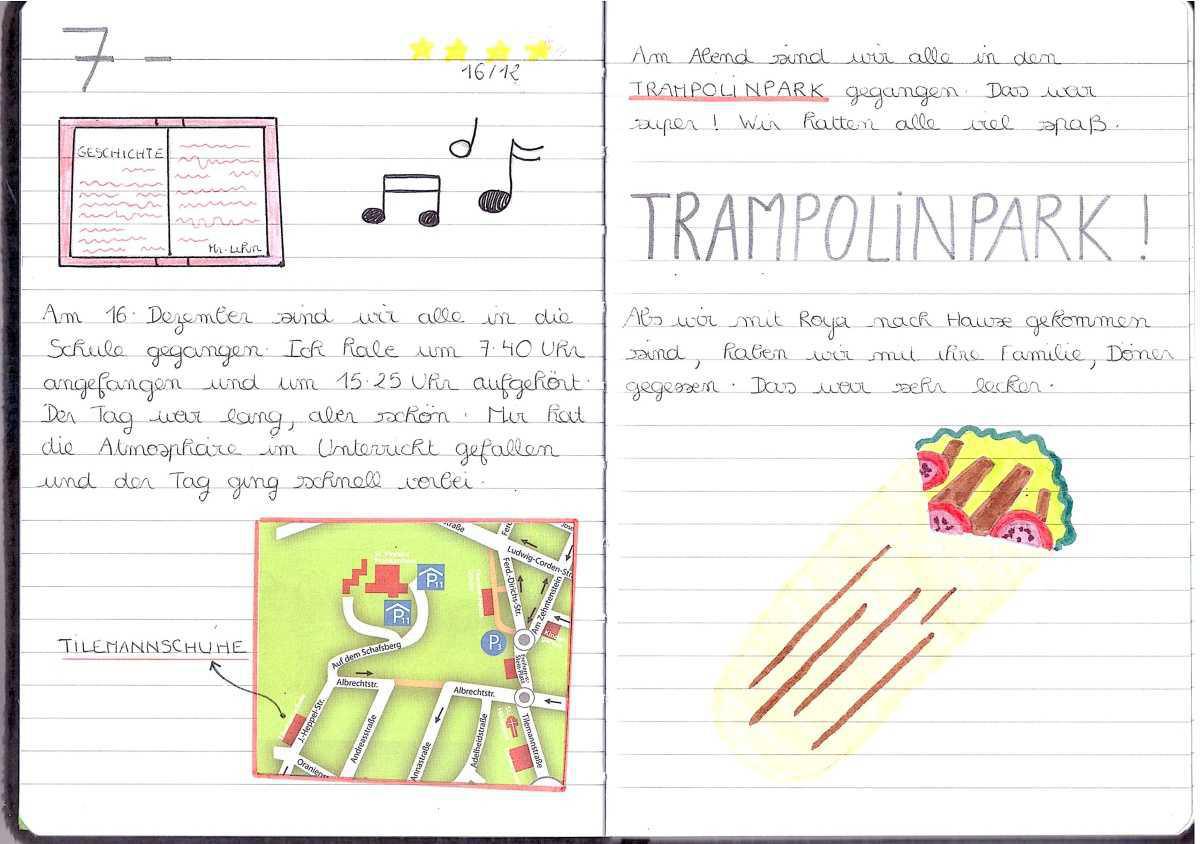 7 -
16/12
GESCHICHTE
Am 16. Dezember sind wir alle in die
Schule gegangen. Ich habe um 7.40 Uhr
angefangen und um 15.25 Uhr aufgehört.
Der Tag war lang, aber schön. Mir hat
die Atmosphäre im Unterricht gefallen
und der Tag ging schnell vorbei.
TILEMANNSCHUHE
straße
Ludwig-Corden-Str.
Ferd.-Dirichs-Str.
Am Zehntenstein
P11
P11
P3
Auf dem Schafsberg
Albrechtstr.
Albrechtstr.
J.-Heppel-Str.
Andreasstraße
Annastraße
Adelheidstraße
Tilemannstraße
Oraniens
Am Abend sind wir alle in den
TRAMPOLiNPARK gegangen. Das war
super! Wir hatten alle viel spaß.
TRAMPOLiNPARK!
Als wir mit Roya nach Hause gekommen
sind, haben wir mit ihre Familie, Döner
gegessen. Das war sehr lecker.